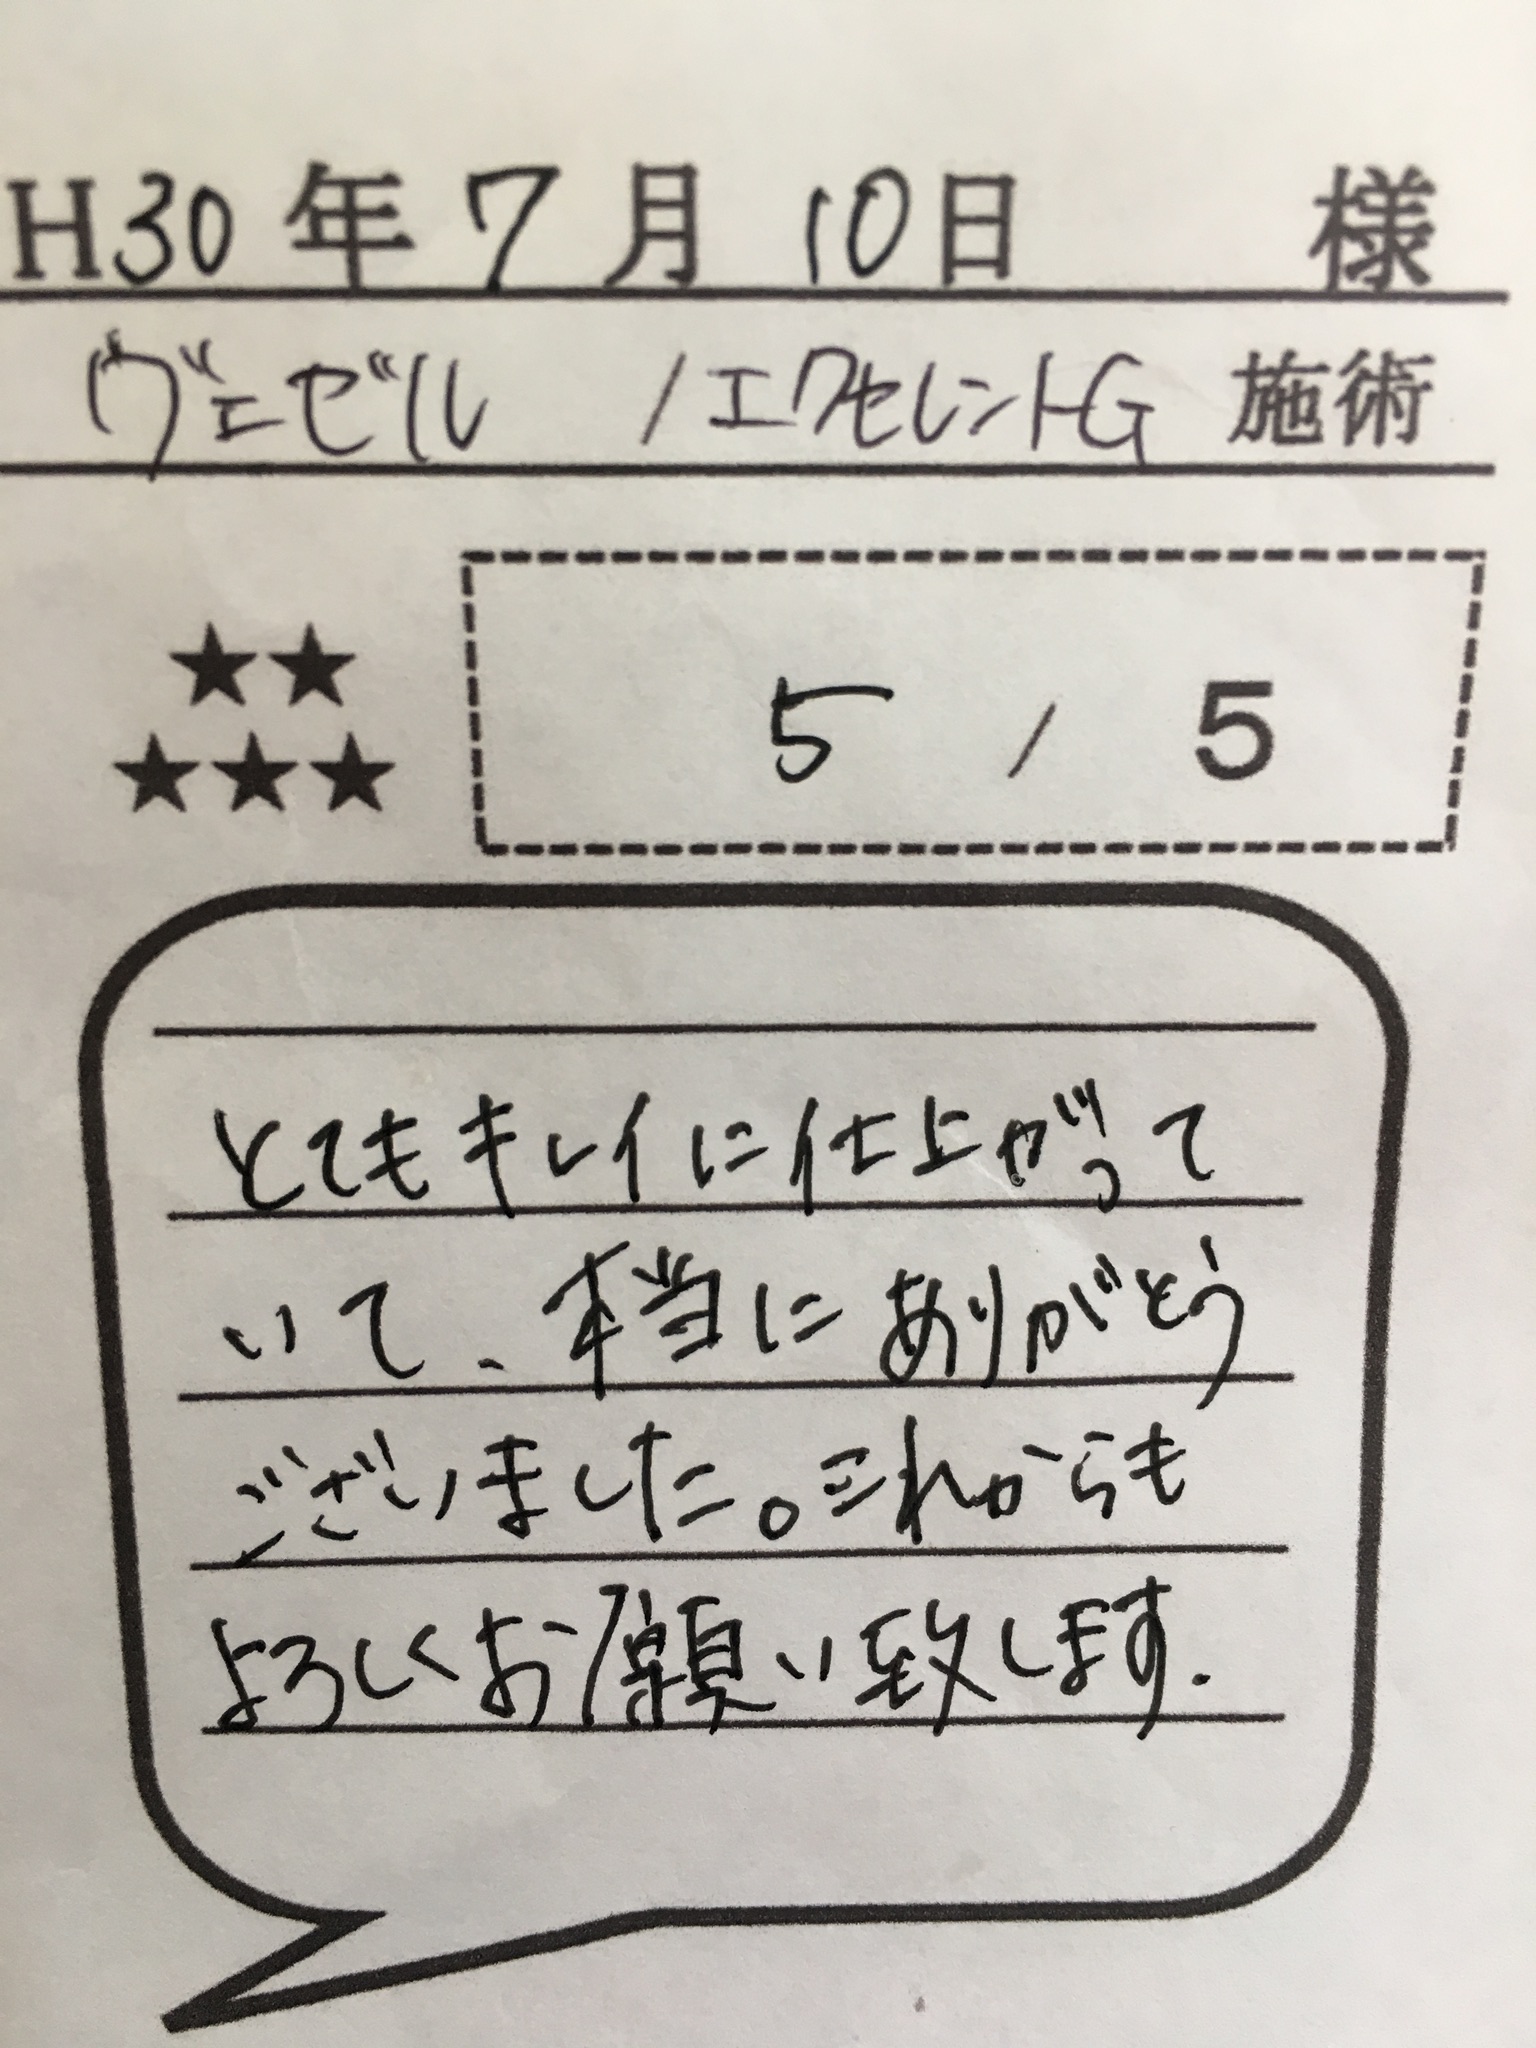 H30年7月10日 様
ヴェゼル /エクセレントG 施術
★★
★★★
5 / 5
とてもキレイに仕上がって
いて、本当にありがとう
ございました。これからも
よろしくお願い致します.